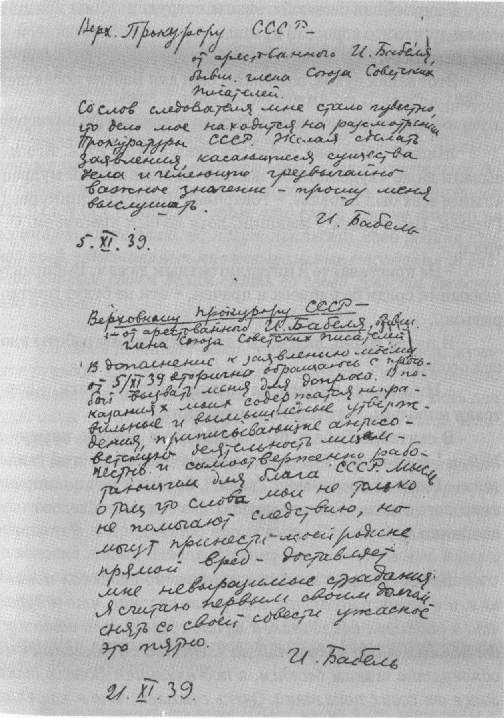 Верх. Прокурору СССР –
от арестованного И. Бабеля,
бывш. члена Союза Советских
Писателей.
Со слов следователя мне стало известно,
что дело мое находится на рассмотрении
Прокуратуры СССР. Желая сделать
заявления, касающиеся существа
дела и имеющие чрезвычайно
важное значение – прошу меня
выслушать.
И. Бабель
5. XI. 39.
Верховному прокурору СССР –
от арестованного И. Бабеля, бывш.
члена Союза Советских писателей
В дополнение к заявлению моему
от 5/XI 39 вторично обращаюсь с прось-
бой вызвать меня для допроса. В по-
казаниях моих содержатся непра-
вильные и вымышленные утверж-
дения, приписывающие антисо-
ветскую деятельность лицам,
честно и самоотверженно рабо-
тающим для блага СССР. Мысль
о том, что слова мои не только
не помогают следствию, но
могут принести моей родине
прямой вред – доставляет
мне невыразимые страдания.
Я считаю первым своим долгом
снять со своей совести ужасное
это пятно.
И. Бабель
21. XI. 39.